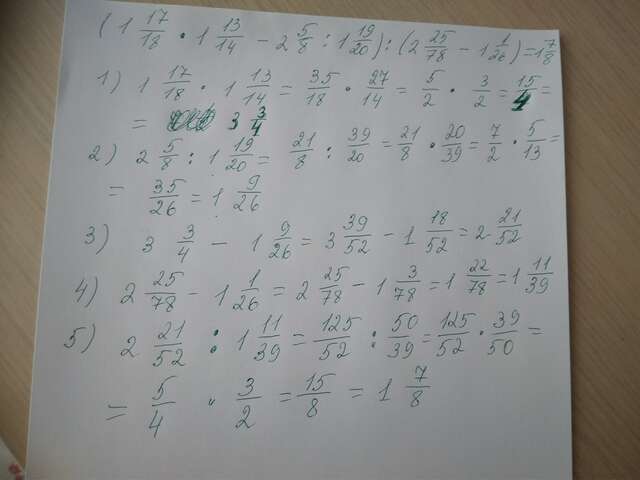 (1 17/18 · 1 13/14 - 2 5/8 : 1 19/20) : (2 25/78 - 1 1/26) = 1 7/8
1) 1 17/18 · 1 13/14 = 35/18 · 27/14 = 5/2 · 3/2 = 15/4 =
= 3 3/4
2) 2 5/8 : 1 19/20 = 21/8 : 39/20 = 21/8 · 20/39 = 7/2 · 5/13 =
= 35/26 = 1 9/26
3) 3 3/4 - 1 9/26 = 3 39/52 - 1 18/52 = 2 21/52
4) 2 25/78 - 1 1/26 = 2 25/78 - 1 3/78 = 1 22/78 = 1 11/39
5) 2 21/52 : 1 11/39 = 125/52 : 50/39 = 125/52 · 39/50 =
= 5/4 · 3/2 = 15/8 = 1 7/8